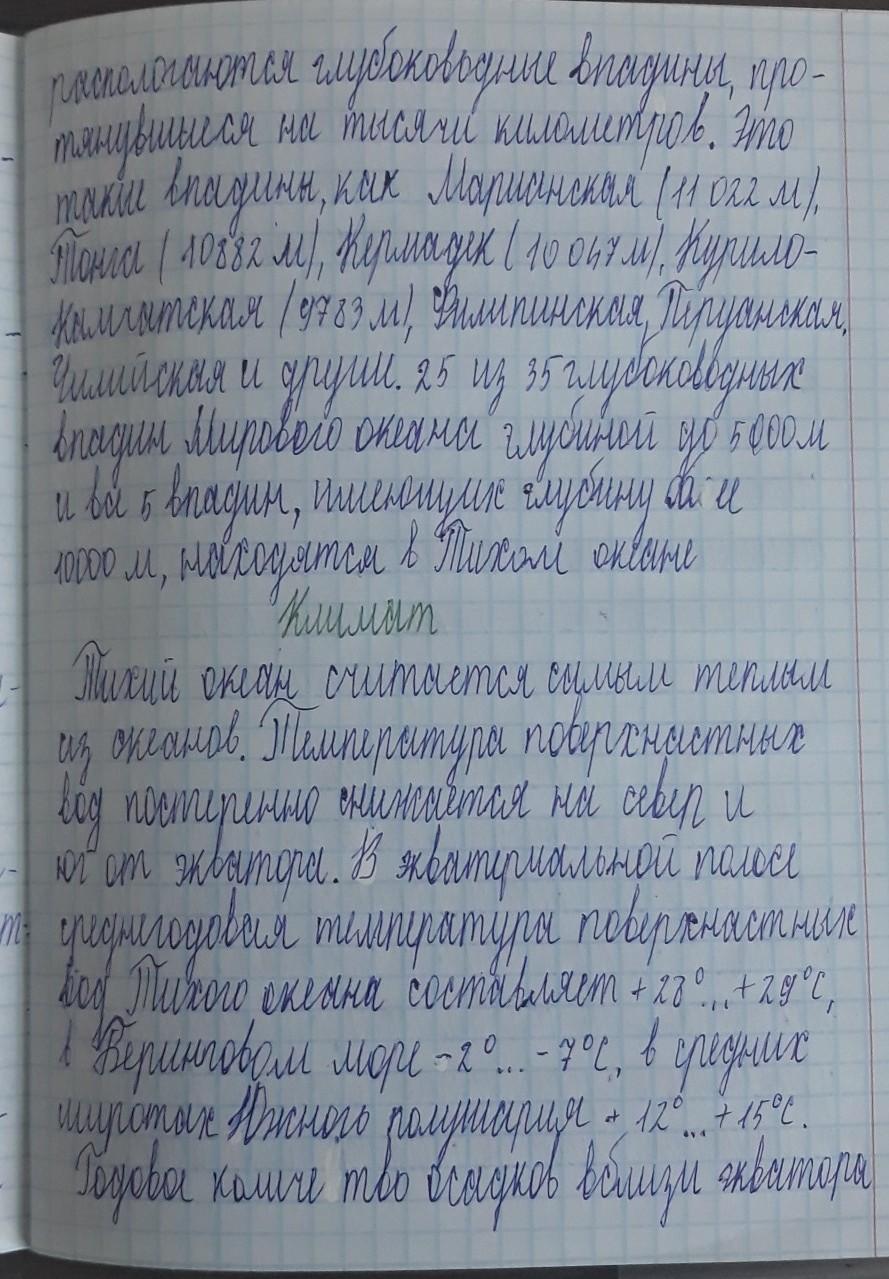 распологаются глубоководные впадины, про-
тянувшиеся на тысячи километров. Это
такие впадины, как Марианская (11 022 м),
Тонга (10882 м), Кермадек (10 047 м), Курило-
Камчатская (9783 м), Филипинская, Перуанская,
Чилийская и другие. 25 из 35 глубоководных
впадин Мирового океана глубиной до 5000 м
и все 5 впадин, имеющих глубину
10000 м, находятся в Тихом океане
Климат
Тихий океан считается самым теплым
из океанов. Температура поверхнастных
вод постепенно снижается на север и
юг от экватора. В экватериальной полосе
среднегодовая температура поверхнастных
вод Тихого океана составляет +28°...+29°С,
в Беринговом море -2°...-7°С, в средних
широтах Южного полушария + 12°...+15°С.
Годовое количе тво осадков вблизи экватора